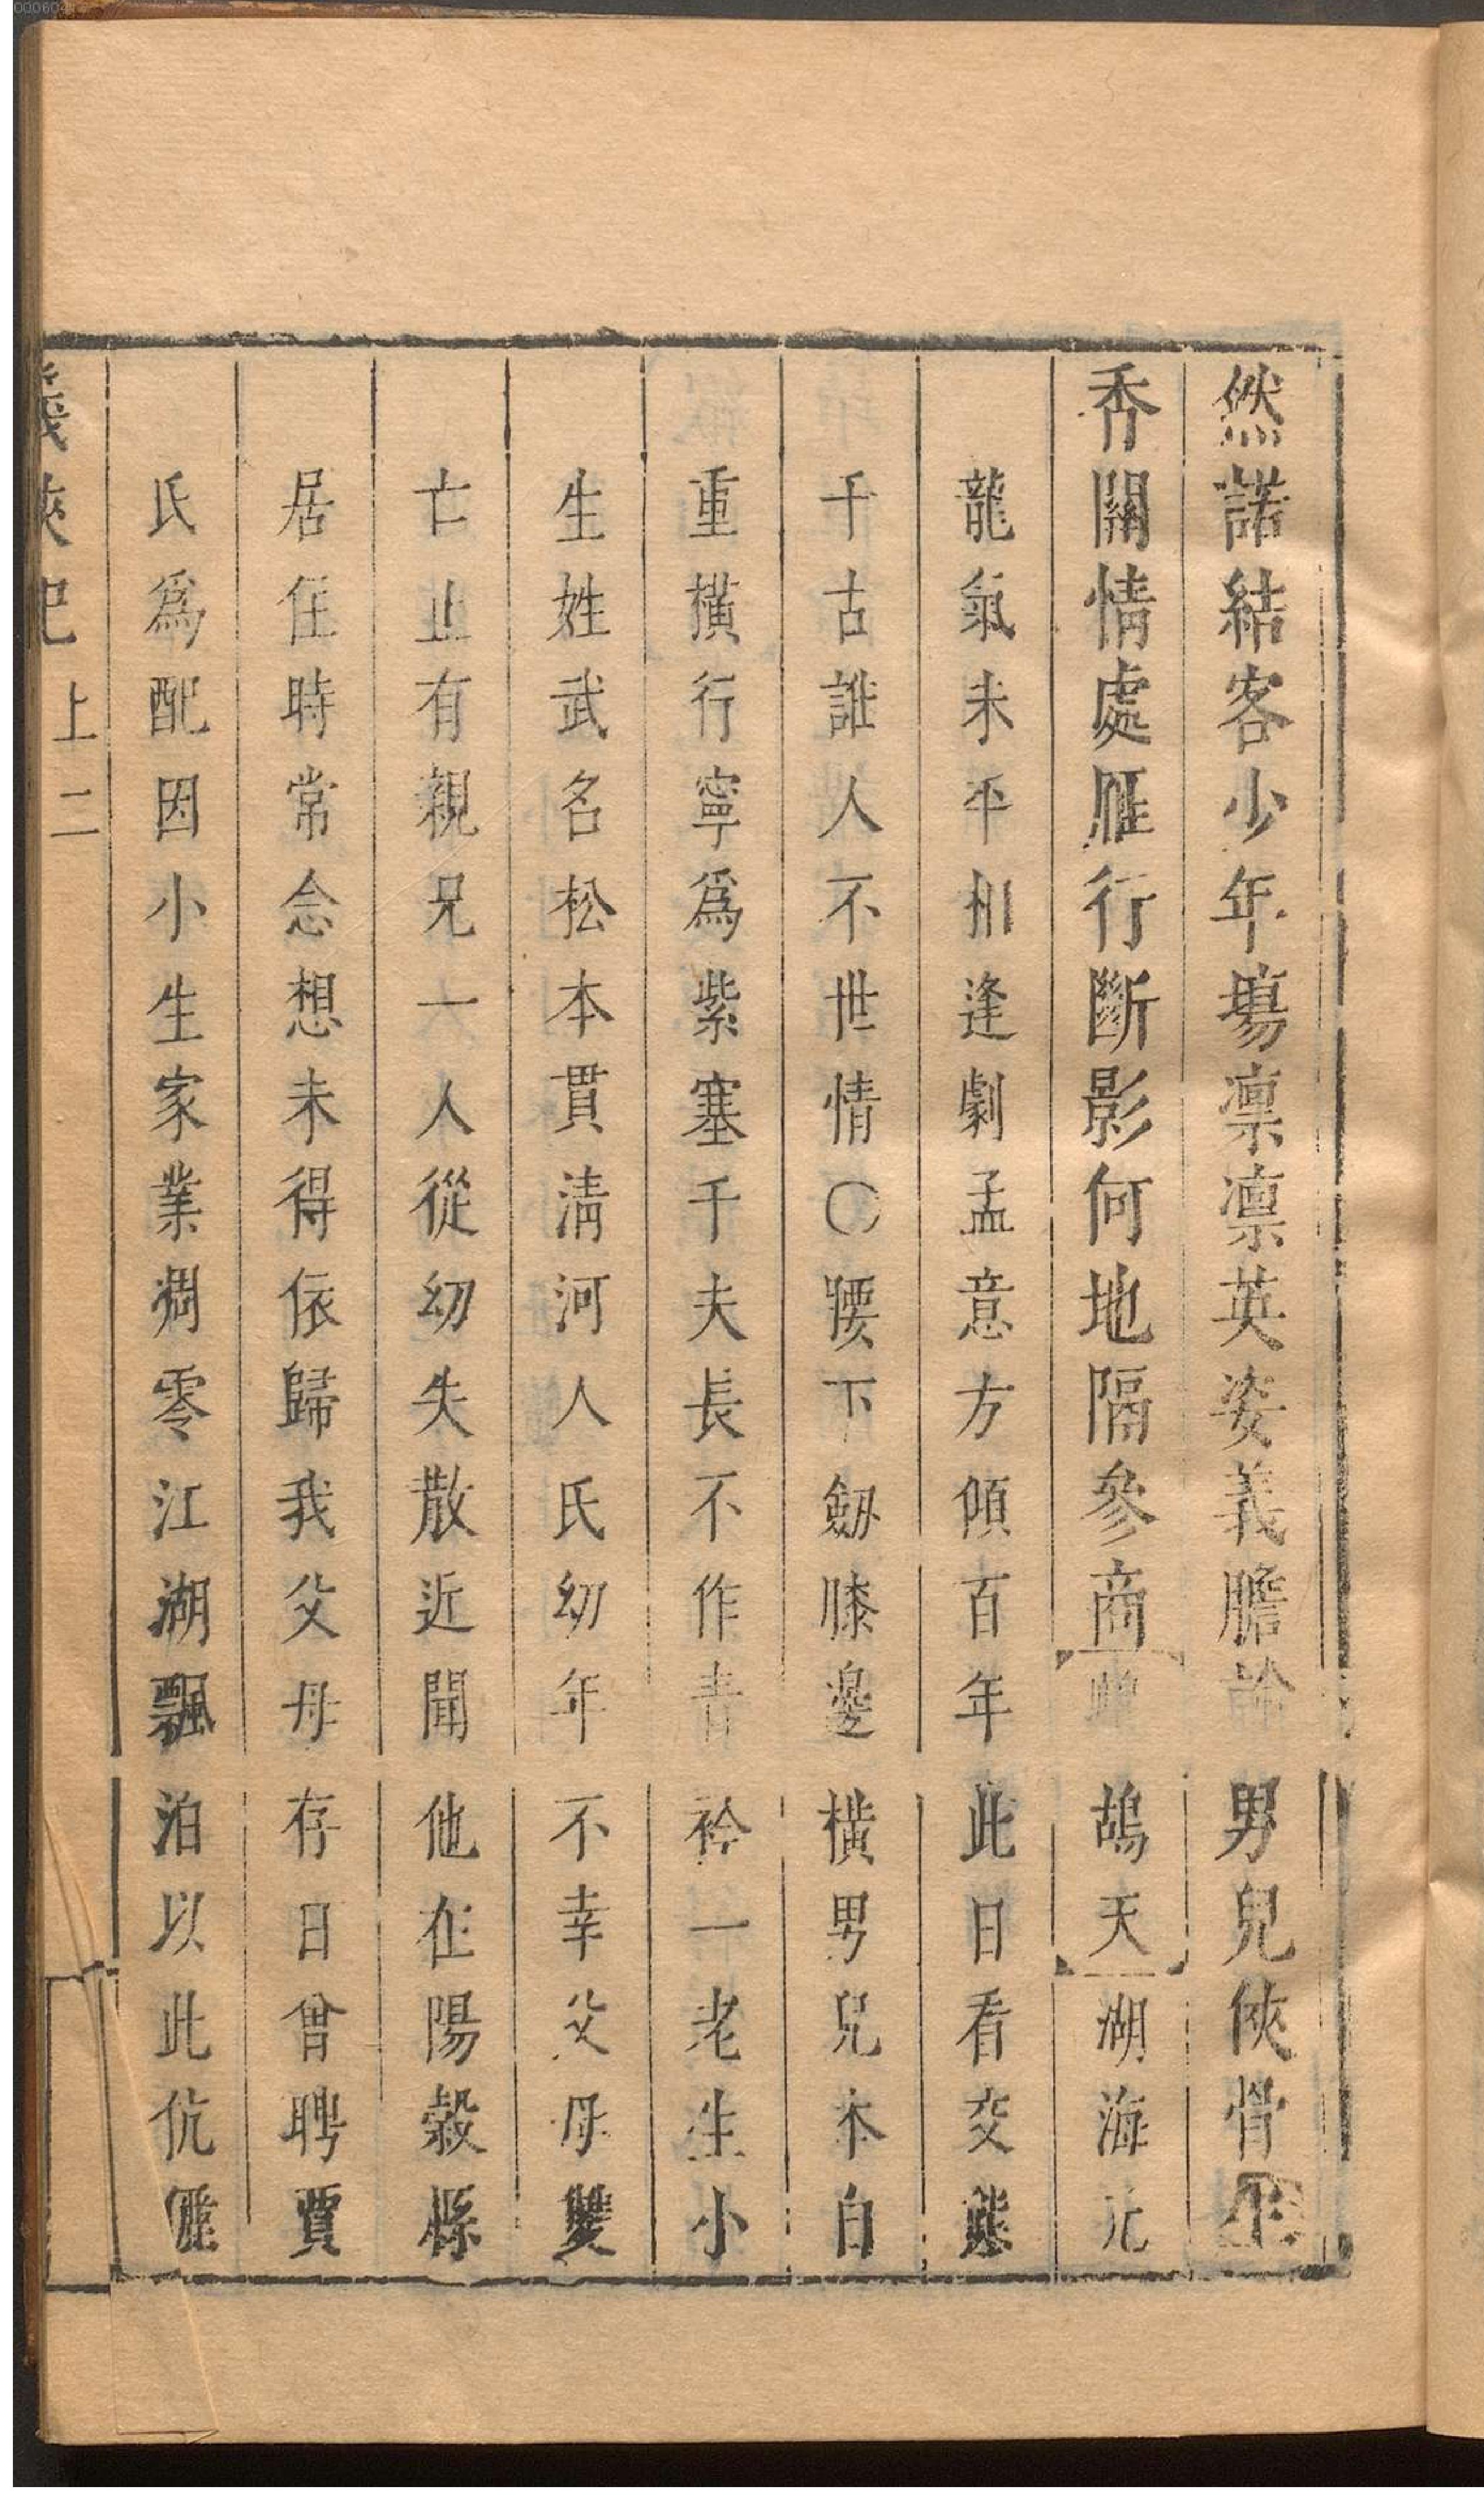 然諾結客少年塲凛凛英姿義膽論男兒俠骨生
香關情處雁行斷影何地隔參商鷓鴣天湖海元
龍氣未平相逢劇孟意方傾百年此日看交態
千古誰人不世情〇腰下劒膝邊橫男兒本自
重橫行寧爲紫塞千夫長不作青衿一老生小
生姓武名松本貫淸河人氏幼年不幸父母雙
亡止有親兄一人從幼失散近聞他在陽榖縣
居住時常念想未得依歸我父母存日曾聘賈
氏爲配因小生家業凋零江湖飄泊以此伉儷
義俠記 上 二